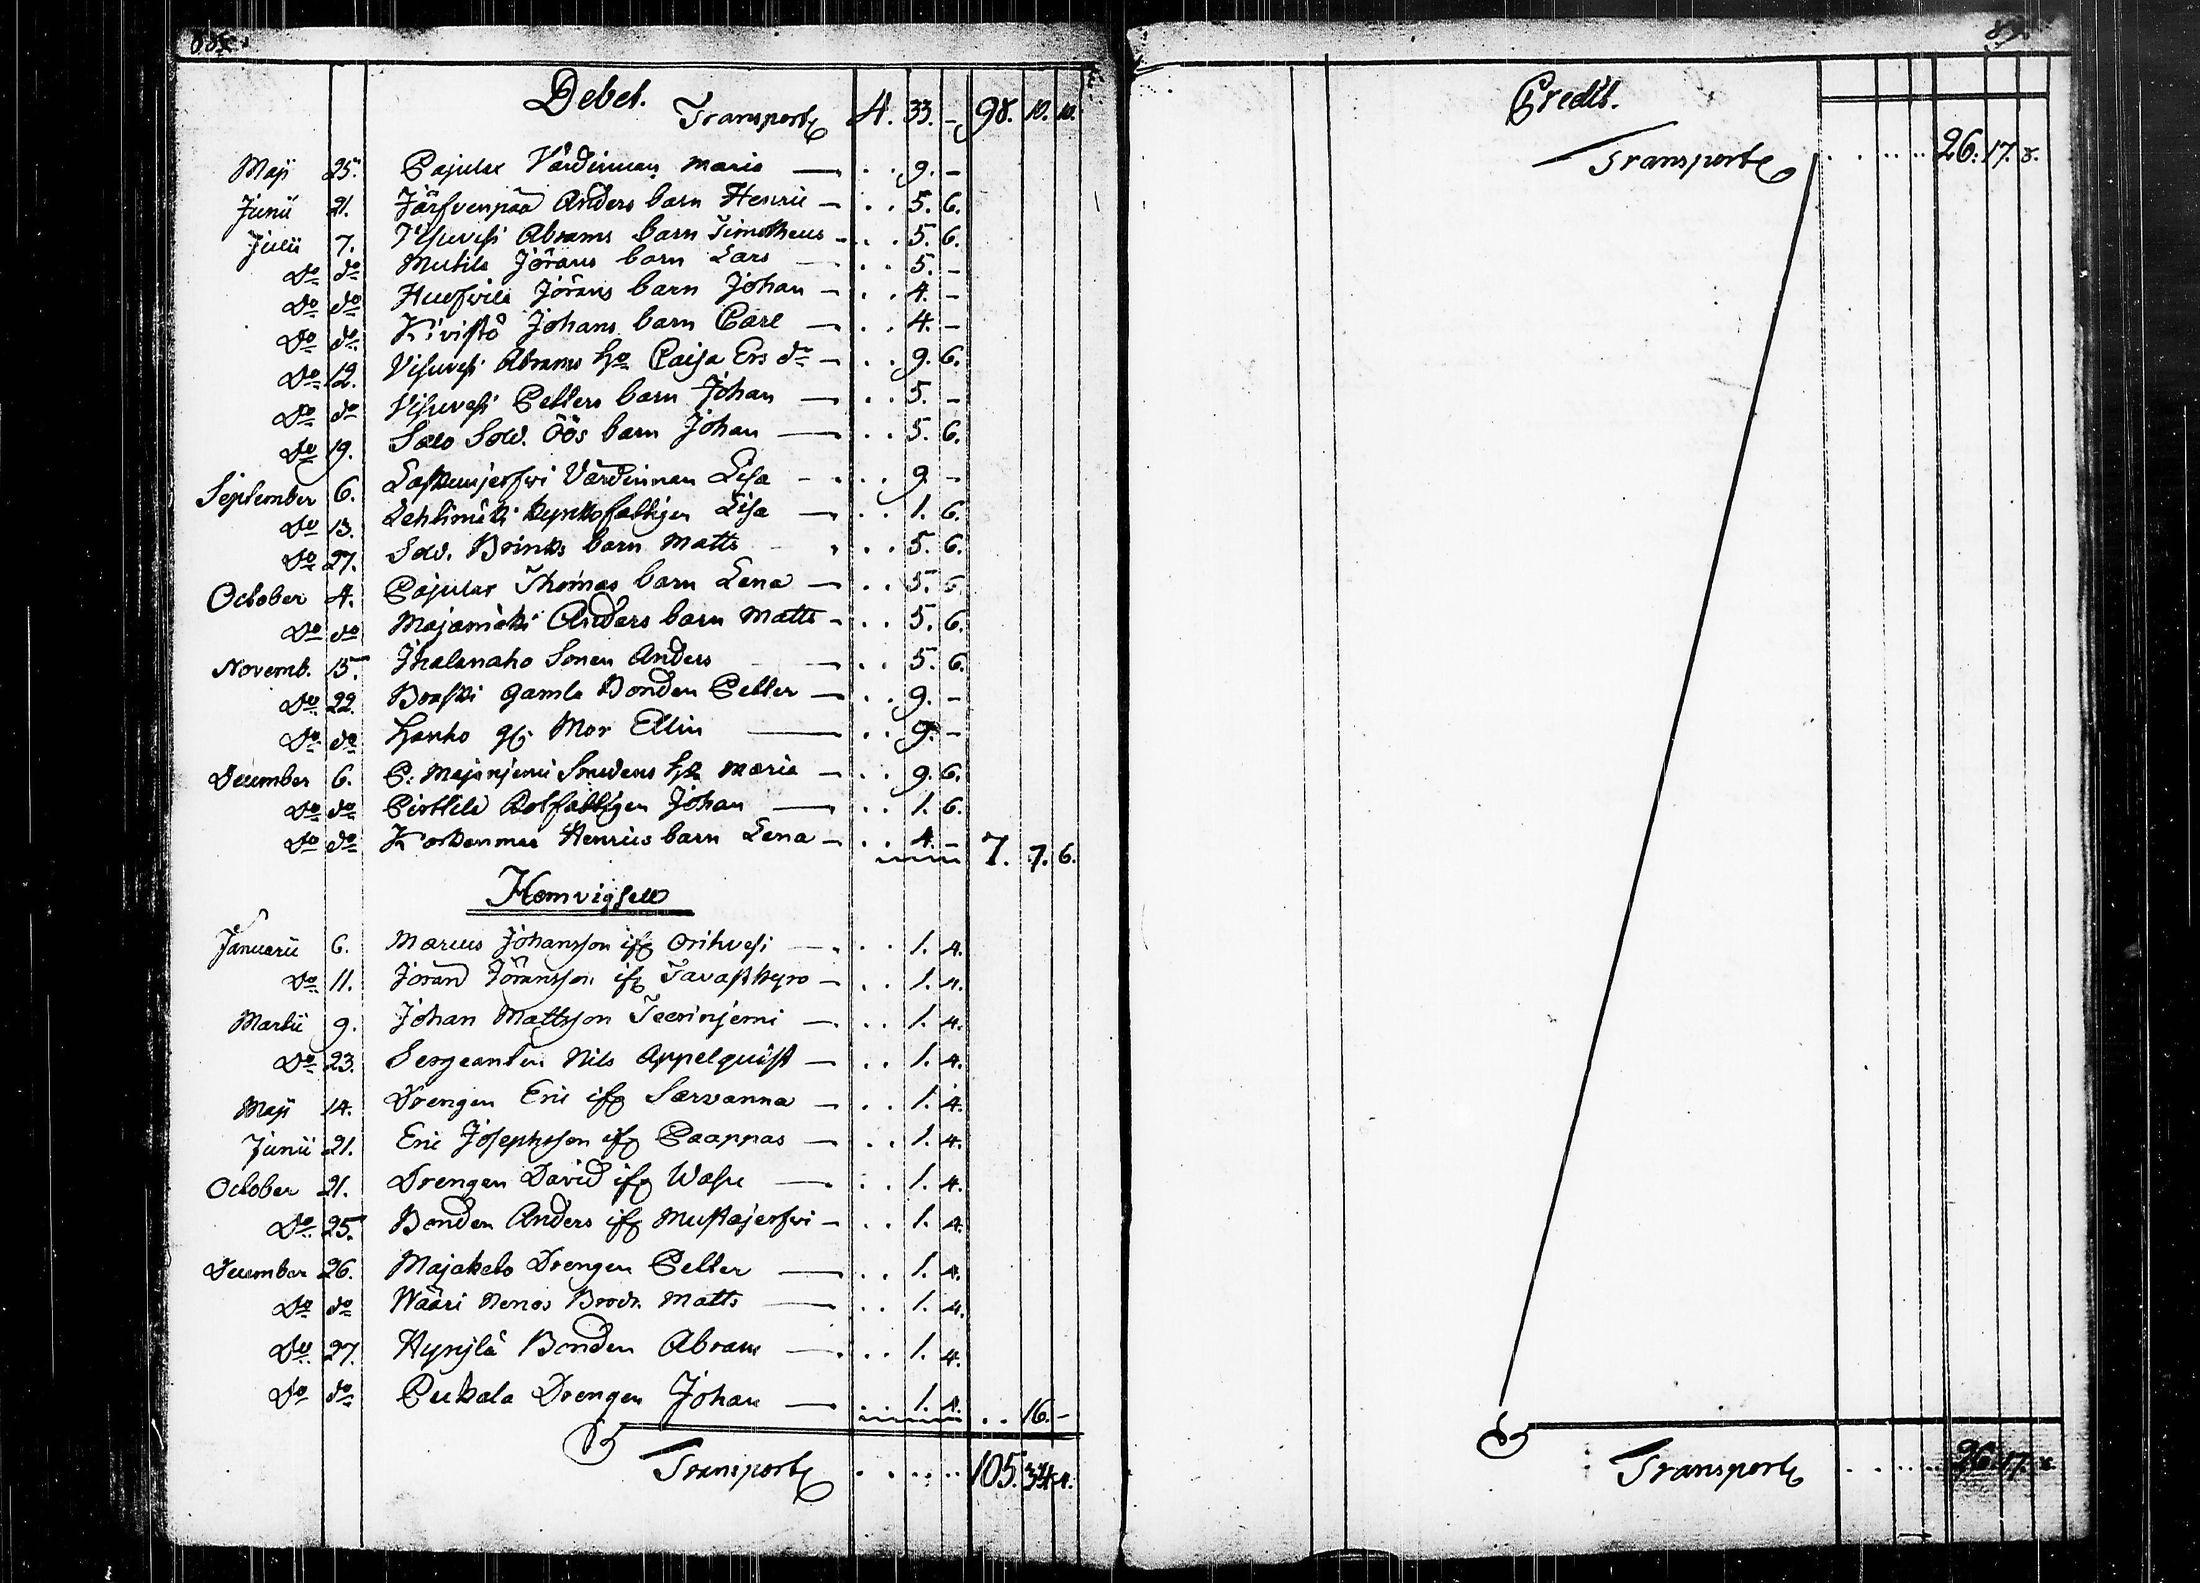 88.
Debet.
Transport 4. 33. - 98. 10. 10.
Maji 25. Pajulax Värdinnan Maria — . . 9. -
Junii 21. Järfvenpää Anders barn Henric — . . 5. 6.
Julii 7. Visuvesi Abrams barn Timotheus — . . 5. 6.
Do do Mutila Jörans barn Lars — . . 5. -
Do do Jörans barn Johan — . . 4. -
Do do Kivistö Johans barn Carl — . . 4. -
Do 12. Visuvesi Abrams ho Caisa Ers dr — . . 9. 6.
Do do Visuvesi Petters barn Johan — . . 5. -
Do 19. Salo Sold. Öös barn Johan — . . 5. 6.
September 6. Laskunjerfwi Värdinnan Lisa — . . 9. -
Do 13. Lehtimäki Lisa — . . 1. 6.
Do 27. Sold. Brinks barn Matts . . 5. 6.
October 4. Pajulax Thomas barn Lena — . . 5. 6.
Do do Majamäki Anders barn Matts — . . 5. 6.
Novemb. 15. Ihalanaho Sonen Anders — . . 5. 6.
Do 22. Gamla Bonden Petter — . . 9. -
Do do Hanho Mor Ellin — . . 9. -
December 6. P: Majanjemi Smedens Maria — . . 9. 6.
Do do Pirttilä Rotfattigen Johan — . . 1. 6.
Do do Henrics barn Lena — . . 4. - 7. 7. 6.
Hemvigsell
Januarii 6. Marcus Johansson ifr Orihvesi — . . 1. 4.
Do 11. Jöran Jöransson ifr Tavastkyro — . . 1. 4.
Martii 9. Johan Mattsson Teerinjemi — . . 1. 4.
Do 23. Sergeanten Nils Appelquist — . . 1. 4.
Maji 14. Drengen Eric ifr Sarvanna — . . 1. 4.
Junii 21. Eric Josephsson ifr Paappas — . . 1. 4.
October 21. Drengen David ifr — . . 1. 4.
Do 25. Bonden Anders ifr Mustajerfwi — . . 1. 4.
December 26. Majakato Drengen Petter — . . 1. 4.
Do do Wääri Matts — . . 1. 4.
Do 27. Hynjlä Bonden Abram — . . 1. 4.
Do do Pukala Drengen Johan — . . 1. 4. . . 16. -
Transport . . . . . 105. 34. 4.
89.
Credit.
Transport . . . . . 26. 17. 8.
Transport . . . . . 26. 17. 8.